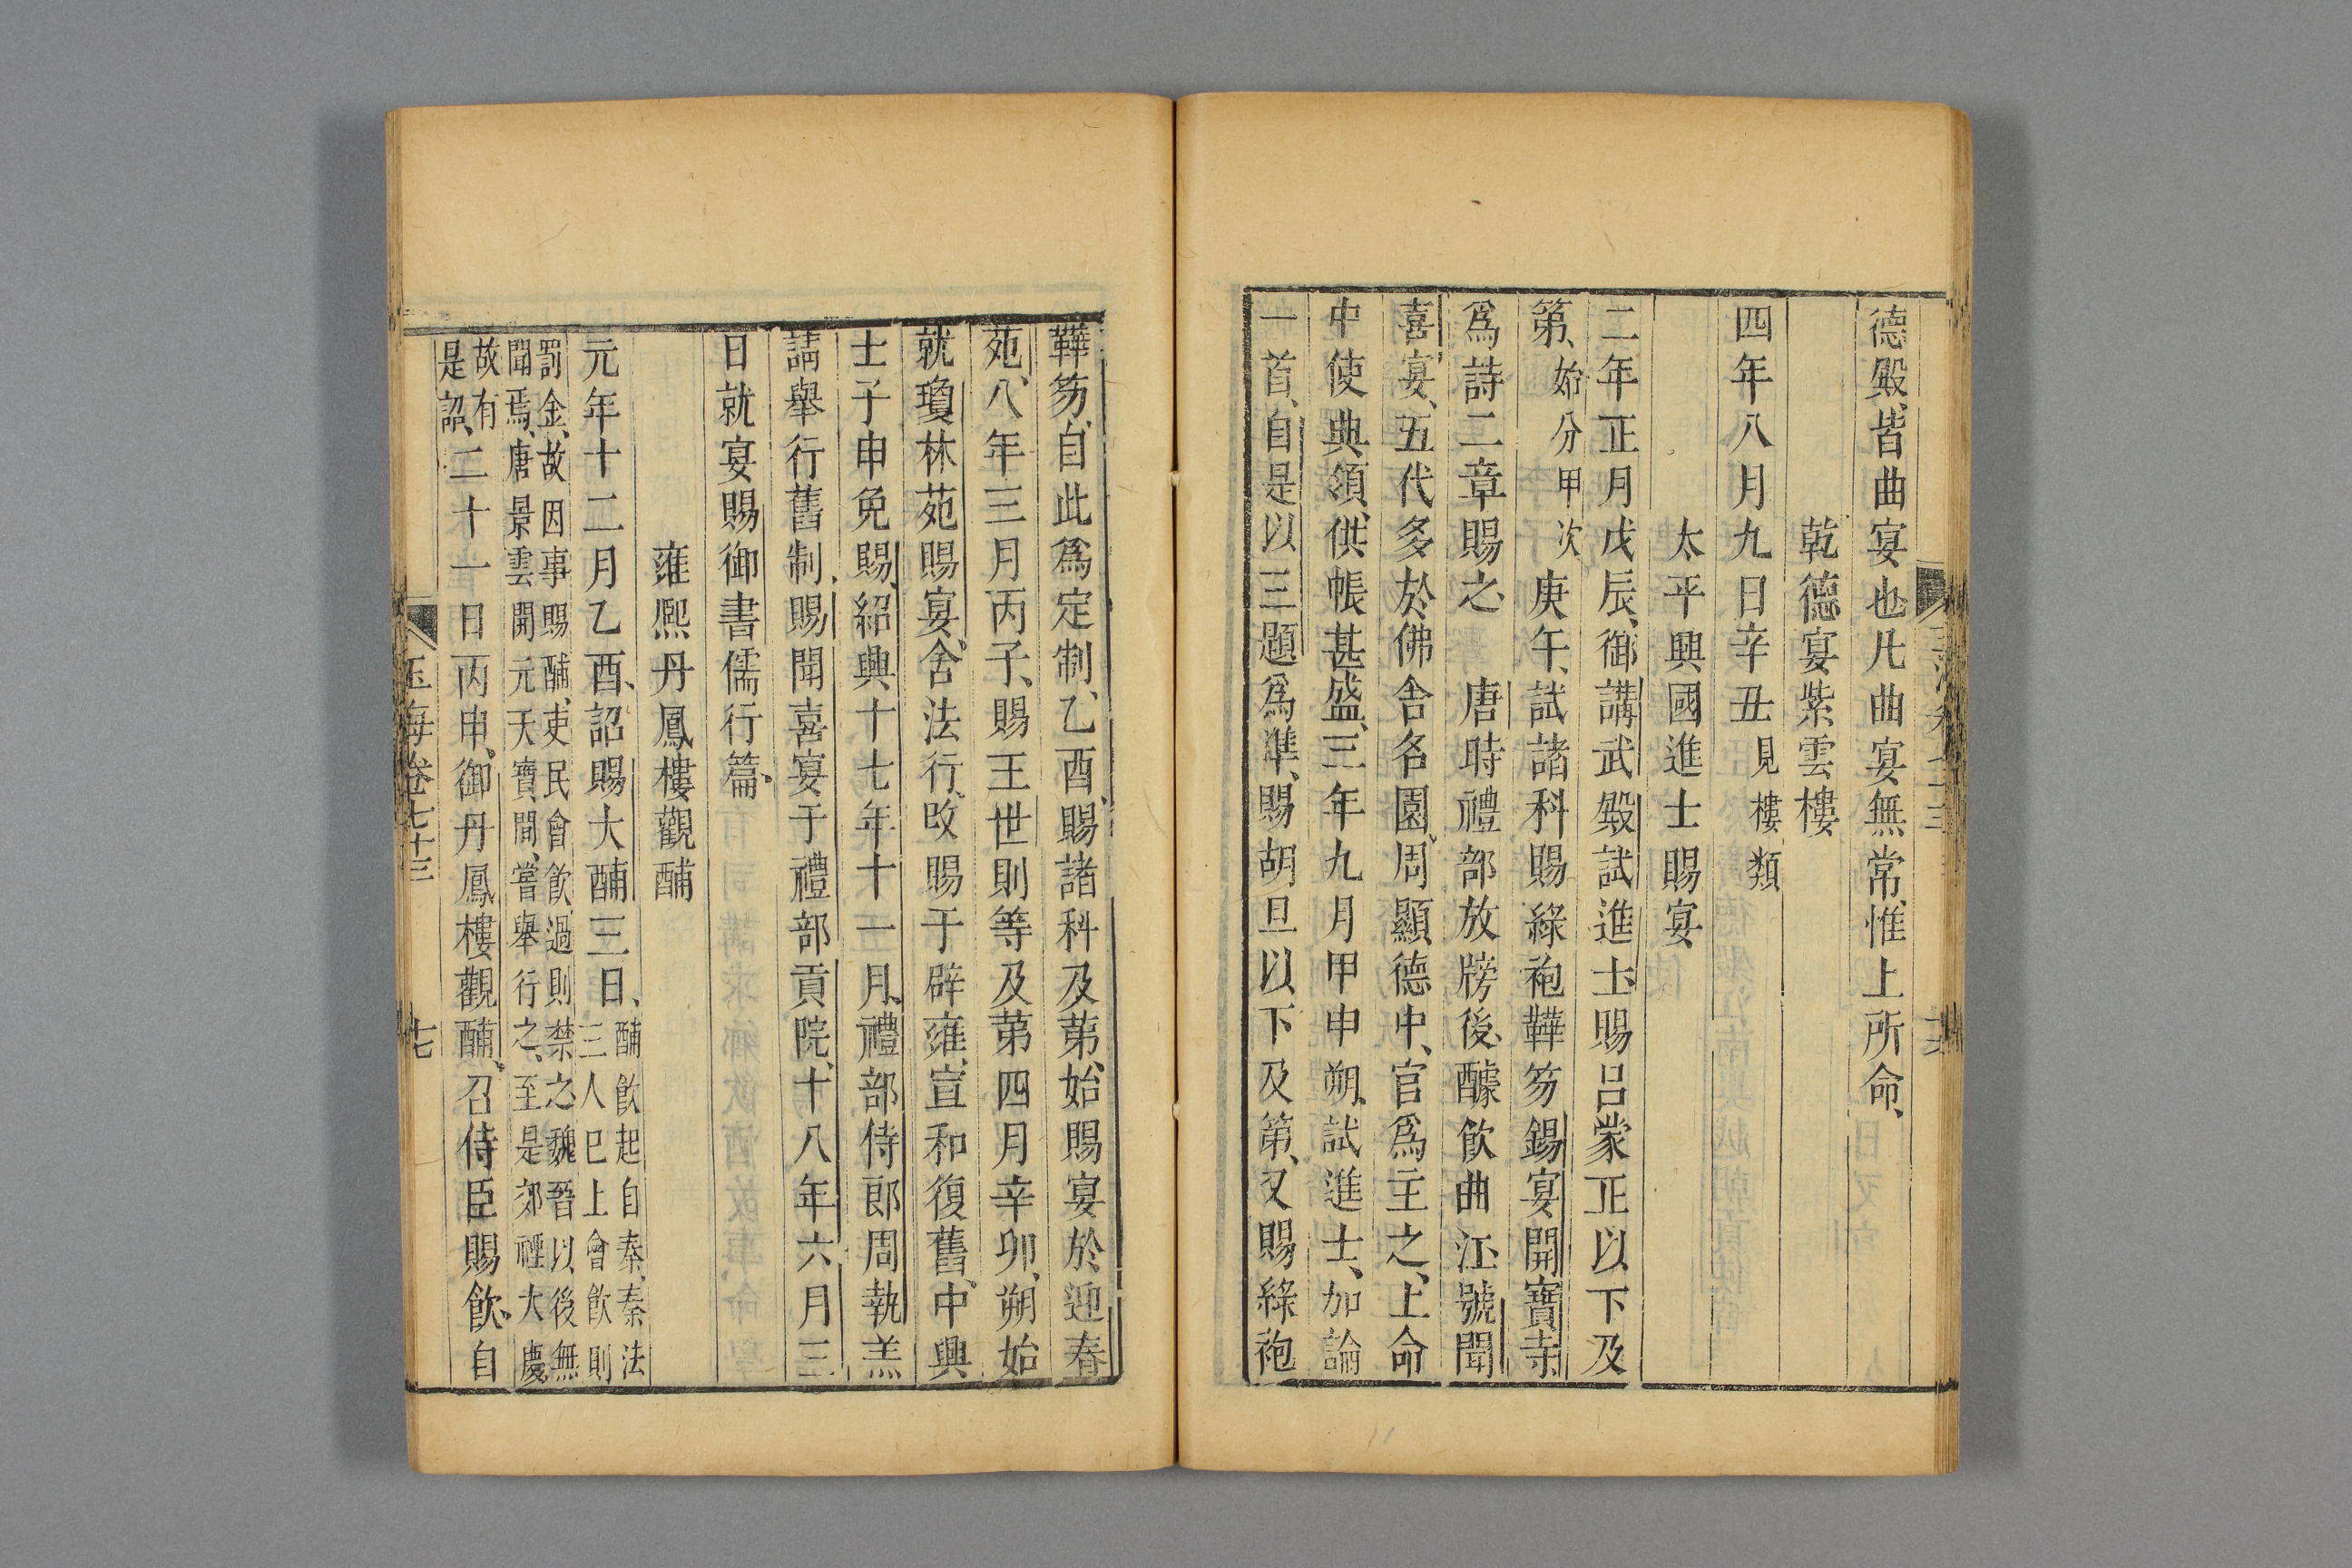 德殿、皆曲宴也、凡曲宴無常、惟上所命、
乾德宴紫雲樓
四年八月九日辛丑見樓類
太平興國進士賜宴
二年正月戊辰、御講武殿試進士、賜呂蒙正以下及
第、始分甲次庚午、試諸科賜綠袍鞾笏、錫宴開寶寺、
爲詩二章賜之、唐時禮部放牓後、醵飲曲江、號聞
喜宴、五代多於佛舍名園、周顯德中、官爲主之、上命
中使典領、供帳甚盛、三年九月甲申朔、試進士、加論
一首、自是以三題爲準、賜胡旦以下及第、又賜綠袍
鞾笏、自此爲定制、乙酉、賜諸科及第、始賜宴於迎春
苑、八年三月丙子、賜王世則等及第四月辛卯、朔、始
就瓊林苑賜宴、舍法行、改賜于辟雍、宣和復舊、中興
士子申免賜、紹興十七年十一月、禮部侍郎周執羔
請舉行舊制、賜聞喜宴于禮部貢院、十八年六月三
日就宴賜御書儒行篇、
雍熙丹鳳樓觀酺
元年十二月乙酉、詔賜大酺三日、酺飲起自秦、秦法
三人已上會飲則
罰金、故因事賜酺、吏民會飲過則禁之、魏晉以後無
聞焉、唐景雲開元天寶間、嘗舉行之、至是郊禋大慶
故有
是詔、二十一日丙申、御丹鳳樓觀酺、召侍臣賜飲、自
玉海卷七十三
十七